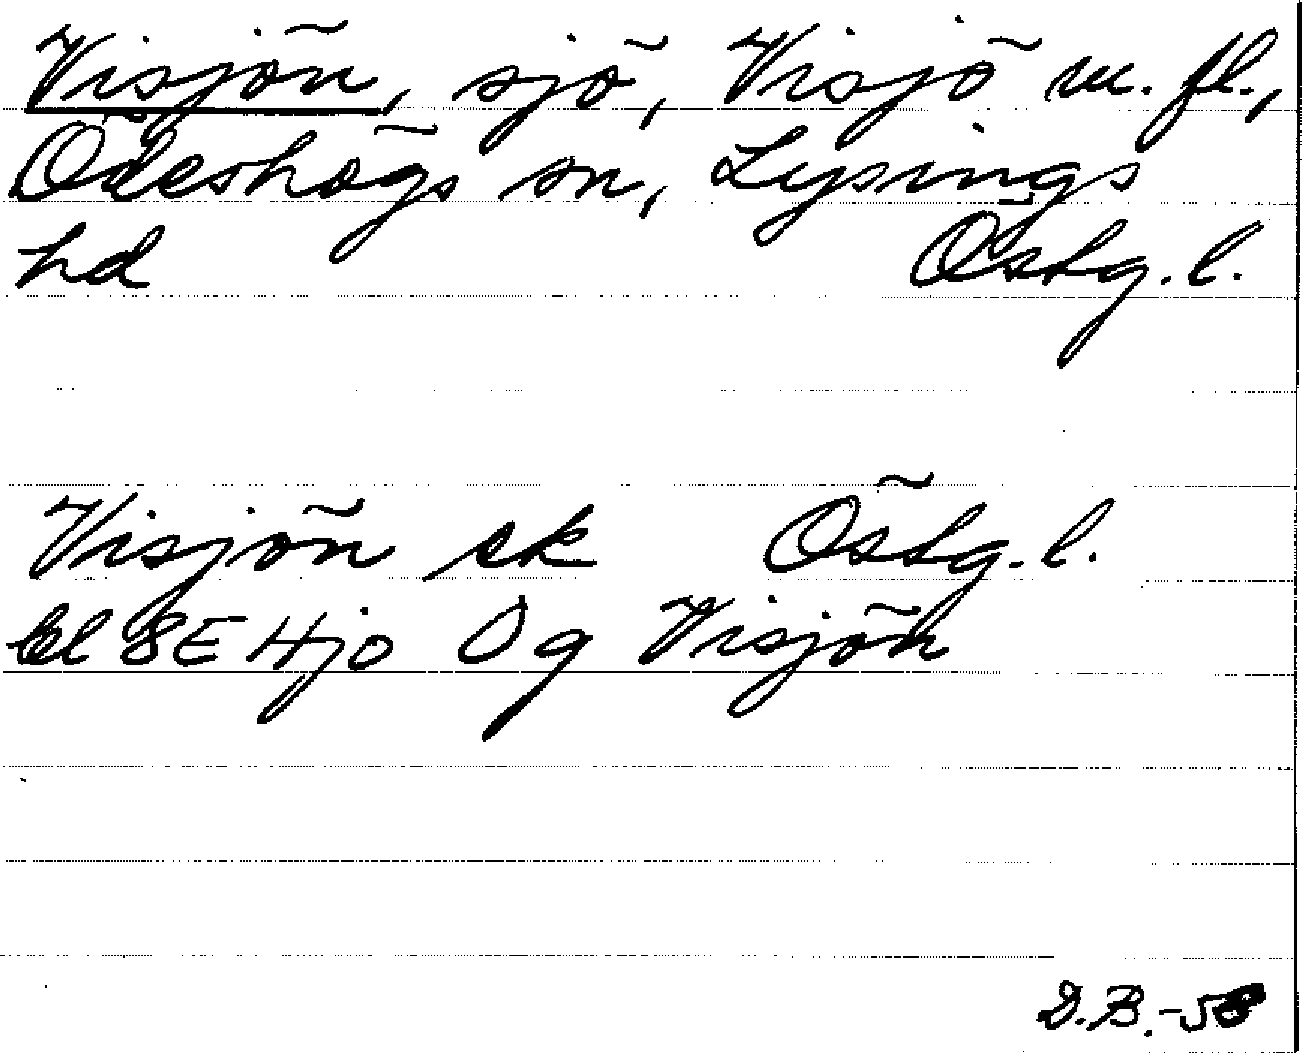 Visjön, sjö, Visjö m. fl.,
Ödeshögs sn, Lysings
hd Östg. l.
Visjön ek Östg. l.
bl 8E Hjo Og Visjön
D.B.-58